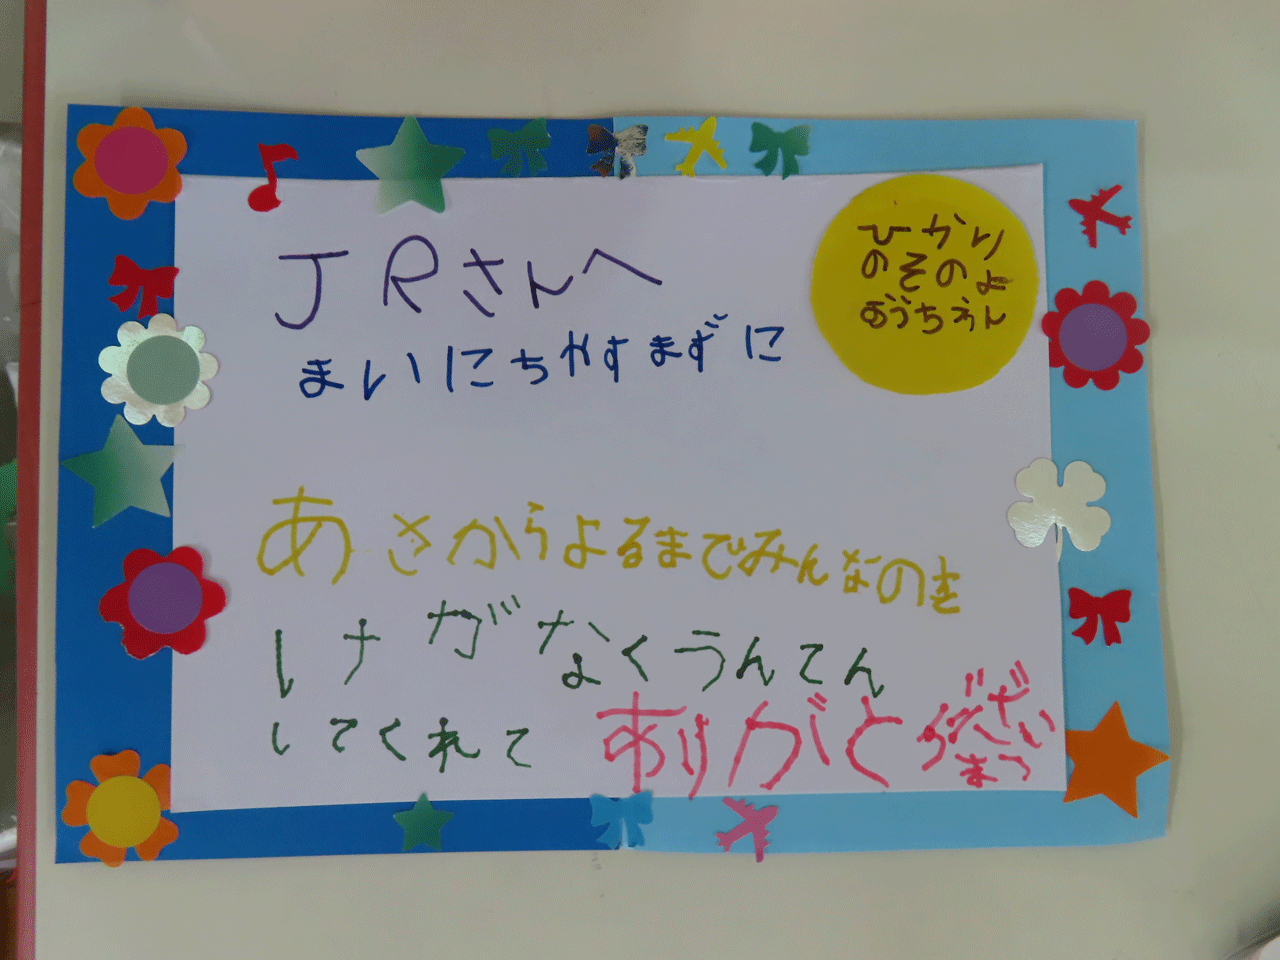 JRさんへ
ひかり
のそのよ
おうちえん
まいにちやすまずに
あさからよるまでみんなのを
けががなくうんてん
してくれて
ありがとうござい
ます